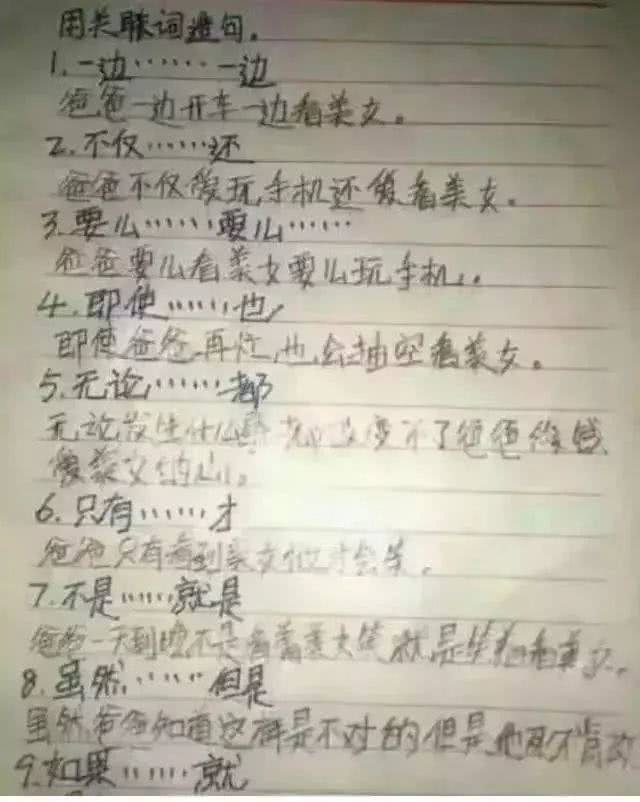 用关联词造句。
1.一边……一边
爸爸一边开车一边看美女。
2.不仅……还
爸爸不仅会玩手机还会看美女。
3.要么……要么……
爸爸要么看美女要么玩手机。
4.即使……也
即使爸爸再忙,也会抽空看美女。
5.无论……都
无论发生什么事都改变不了爸爸
美女的心。
6.只有……才
爸爸只有看到美女他才会笑。
7.不是……就是
爸爸一天到晚不是看着美女笑就是看美女。
8.虽然……但是
虽然爸爸知道这样是不对的但是他死不肯改
9.如果……就